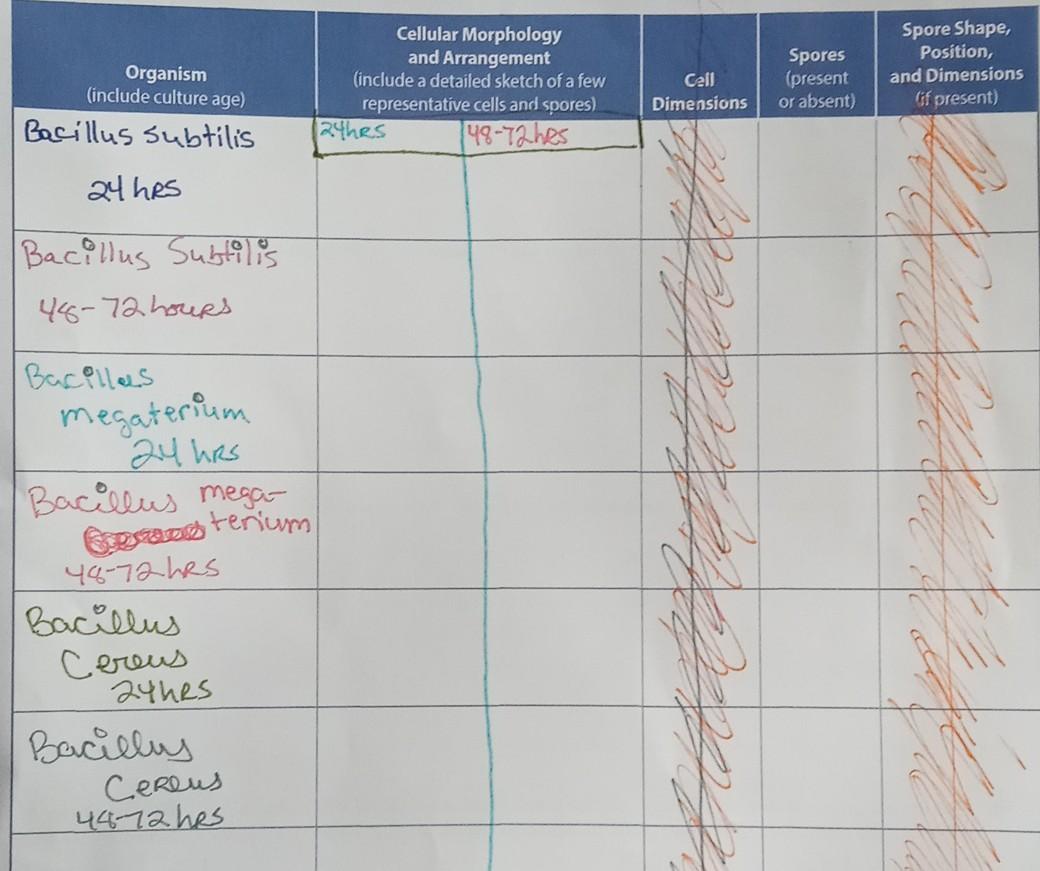 Organism
(include culture age)
Cellular Morphology
and Arrangement
(include a detailed sketch of a few
representative cells and spores)
Cell
Dimensions
Spores
(present
or absent)
Spore Shape,
Position,
and Dimensions
(if present)
Bacillus Subtilis
24 hrs
24hrs
48-72hrs
Bacillus Subtilis
48-72 hours
Bacillus
megaterium
24 hrs
Bacillus mega-
terium
48-72 hrs
Bacillus
Cereus
24hrs
Bacillus
Cereus
48-72 hrs